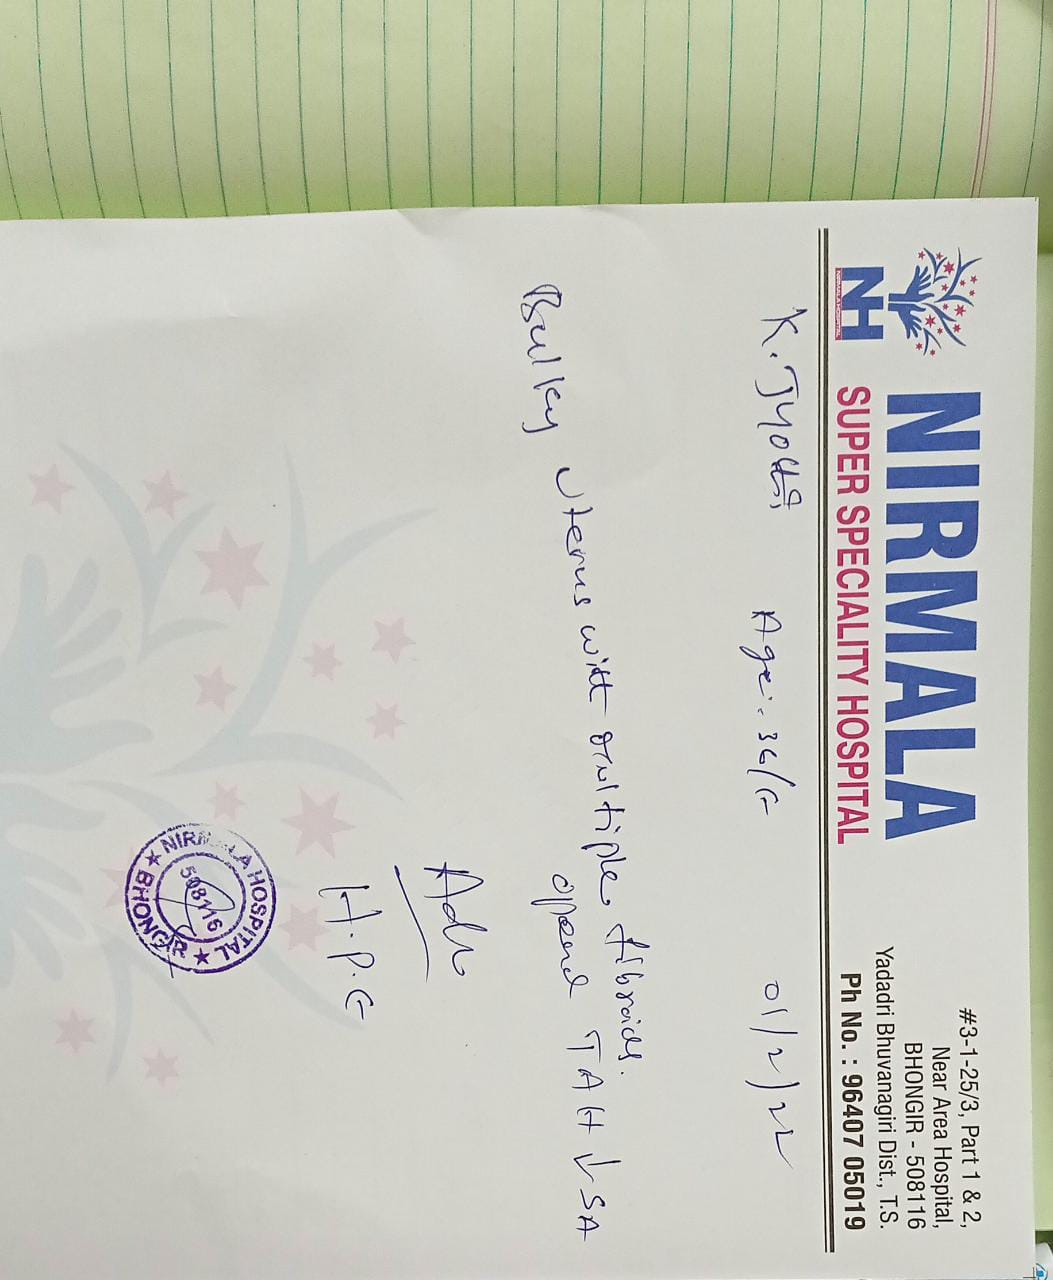 NH
NIRMALA HOSPITAL
NIRMALA
SUPER SPECIALITY HOSPITAL
#3-1-25/3, Part 1 & 2,
Near Area Hospital,
BHONGIR - 508116
Yadadri Bhuvanagiri Dist., T.S.
Ph No. : 96407 05019
K. Jyothi Age:- 36/F 01/2/22
Bulky uterus with multiple fibroids.
TAH ↓ SA
Adv
H.P.E
NIRMALA HOSPITAL
508116
★ BHONGIR ★